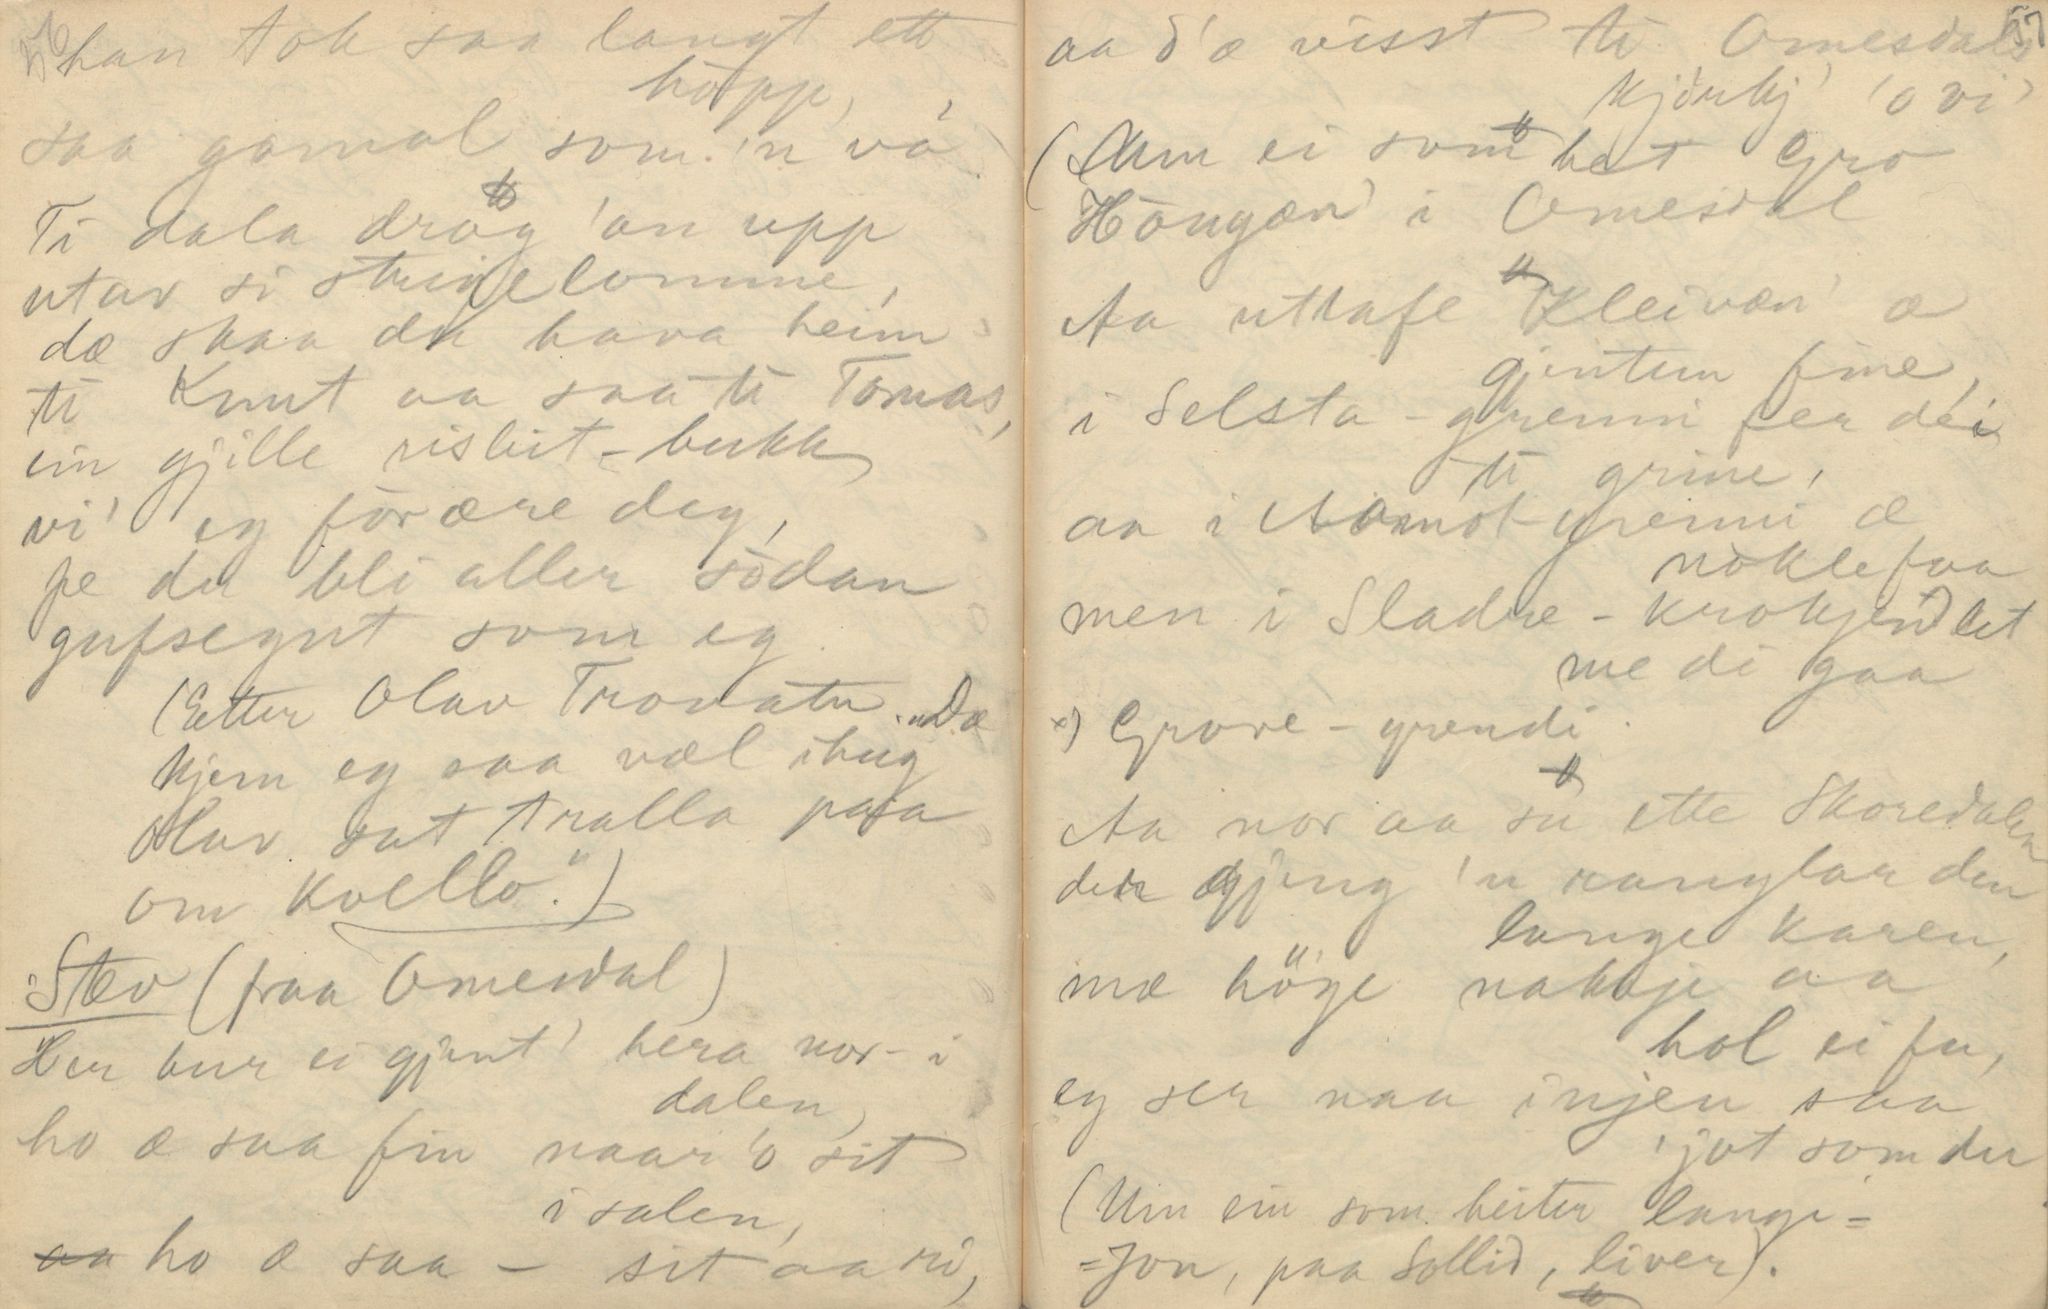 han tok saa langt eit
hopp,
saa gamal som 'n va
Ti dala drog 'an upp
utav si strigelomme,
dæ skaa du hava heim
ti Knut aa saa ti Tomas,
ein gjille risbit-bukk
vi' eg forære deg,
fe du bli aller sodan
gufsegut som eg.
(Etter Olav Tronatu. "Dæ
kjem eg saa væl ihug
Olav sat tralla paa
om Kvello.")
Stev (fraa Omesdal)
Her bur ei gjent' hera nor-i
dalen,
ho æ saa fin naar 'o sit
i salen,
ho æ saa - sit aa ri,
57
aa d'æ visst ti Omesdals
kjørkj' 'o vi'
(Um ei som het Gro
Hougæn i Omesdal
Aa uttafe Kleivæn' æ
gjentun fine,
i Selsta-grenni fer dei
ti grine,
aa i Aamot-grenni æ
nokle faa
men i Sladre-krokjen let
me di gaa
x) Grove-grendi.
Aa nor aa su ette Skoredalen
der gjeng 'n ranglar den
lange karen,
mæ høge nakkje aa
hol ei fu,
eg ser naa injen saa
'jot som du
(Um ein som heiter Langi-
-Jon, paa Sollid, liver).